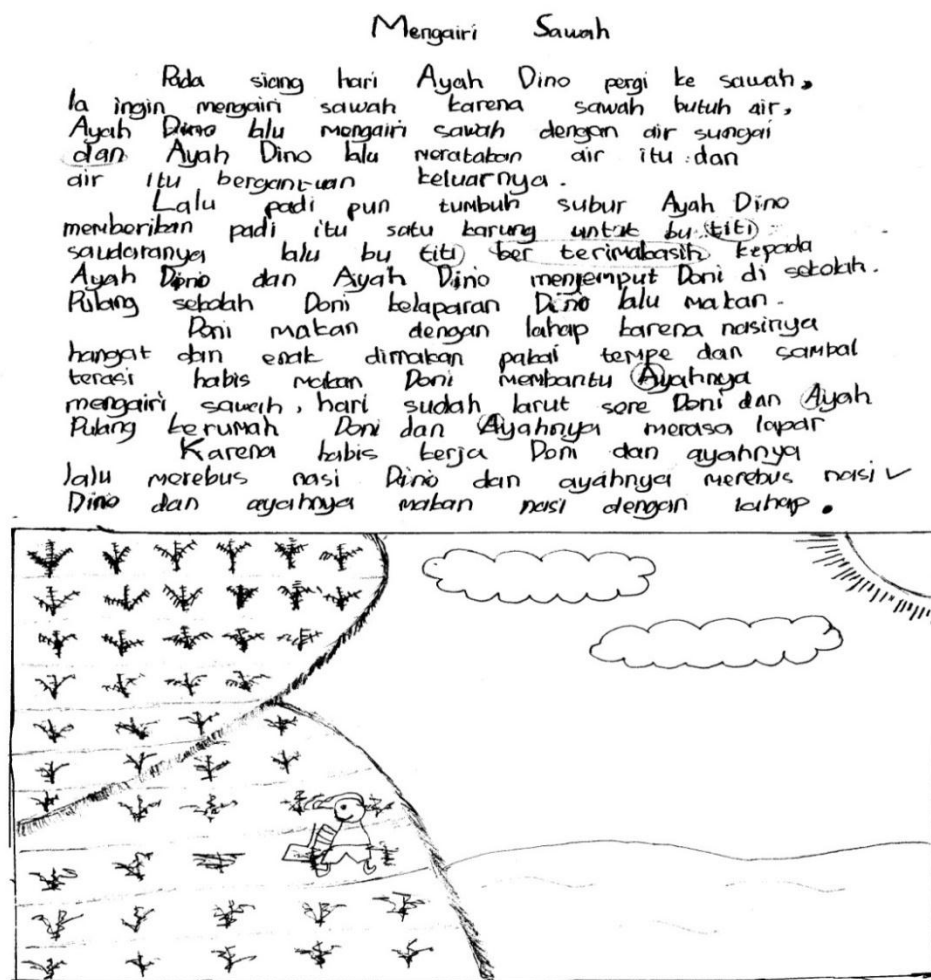 Mengairi Sawah
Pada siang hari Ayah Dino pergi ke sawah,
Ia ingin mengairi sawah karena sawah butuh air,
Ayah Dino lalu mengairi sawah dengan air sungai
dan Ayah Dino lalu meratakan air itu dan
air itu bergantuan keluarnya.
Lalu padi pun tumbuh subur Ayah Dino
memberikan padi itu satu karung untuk bu titi
saudaranya lalu bu titi ber terimakasih kepada
Ayah Dino dan Ayah Dino menjemput Doni di sekolah.
Pulang sekolah Doni kelaparan Dino lalu makan.
Doni makan dengan lahap karena nasinya
hangat dan enak dimakan pakai tempe dan sambal
terasi habis makan Doni membantu Ayahnya
mengairi sawah, hari sudah larut sore Doni dan Ayah
Pulang kerumah Doni dan Ayahnya merasa lapar
Karena habis kerja Doni dan ayahnya
lalu merebus nasi Dino dan ayahnya merebus nasi
Dino dan ayahnya makan nasi dengan lahap.